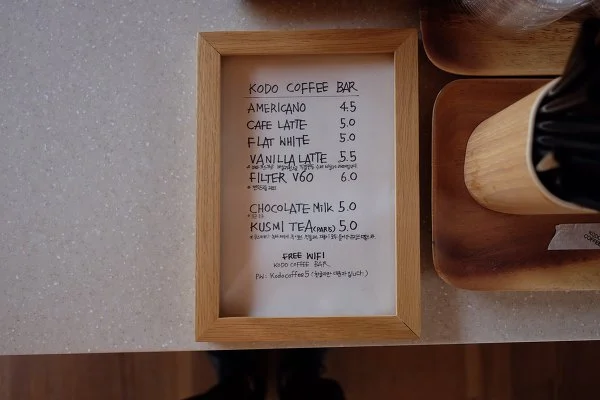 KODO COFFEE BAR
AMERICANO 4.5
CAFE LATTE 5.0
FLAT WHITE 5.0
VANILLA LATTE 5.5
FILTER V60 6.0
CHOCOLATE Milk 5.0
KUSMI TEA (PARIS) 5.0
FREE WIFI
KODO COFFEE BAR
PW: Kodocoffee5
KODO
COFFEE